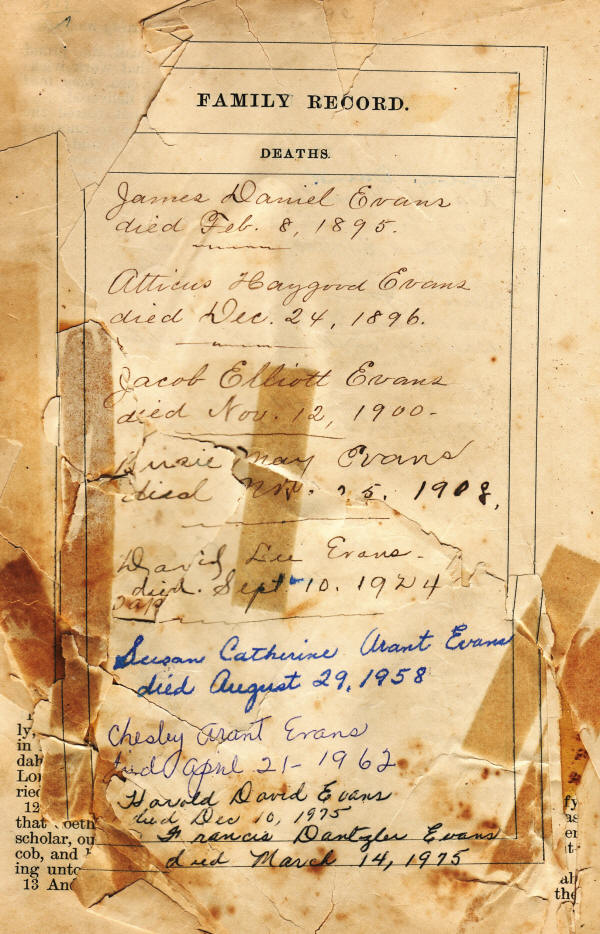 FAMILY RECORD.
DEATHS.
James Daniel Evans
died Feb. 8, 1895.
Atticus Haygood Evans
died Dec. 24, 1896.
Jacob Elliott Evans
died Nov. 12, 1900-
Susie May Evans
died 1908.
David Lee Evans.
died. Sept 10. 1924
Susan Catherine Arant Evans
died August 29, 1958
Chesley Arant Evans
died April 21- 1962
Harold David Evans
died Dec 10, 1975
Francis Dantzler Evans
died March 14, 1975
ly,
in
12
that
scholar,
cob, and
ing
13
the